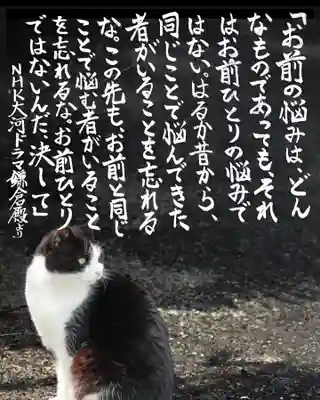 「お前の悩みは、どん
なものであっても、それ
はお前ひとりの悩みで
はない。はるか昔から、
同じことで悩んできた
者がいることを忘れる
な。この先も、お前と同じ
ことで悩む者がいること
を忘れるな。お前ひとり
ではないんだ、決して」
NHK大河ドラマ鎌倉殿より